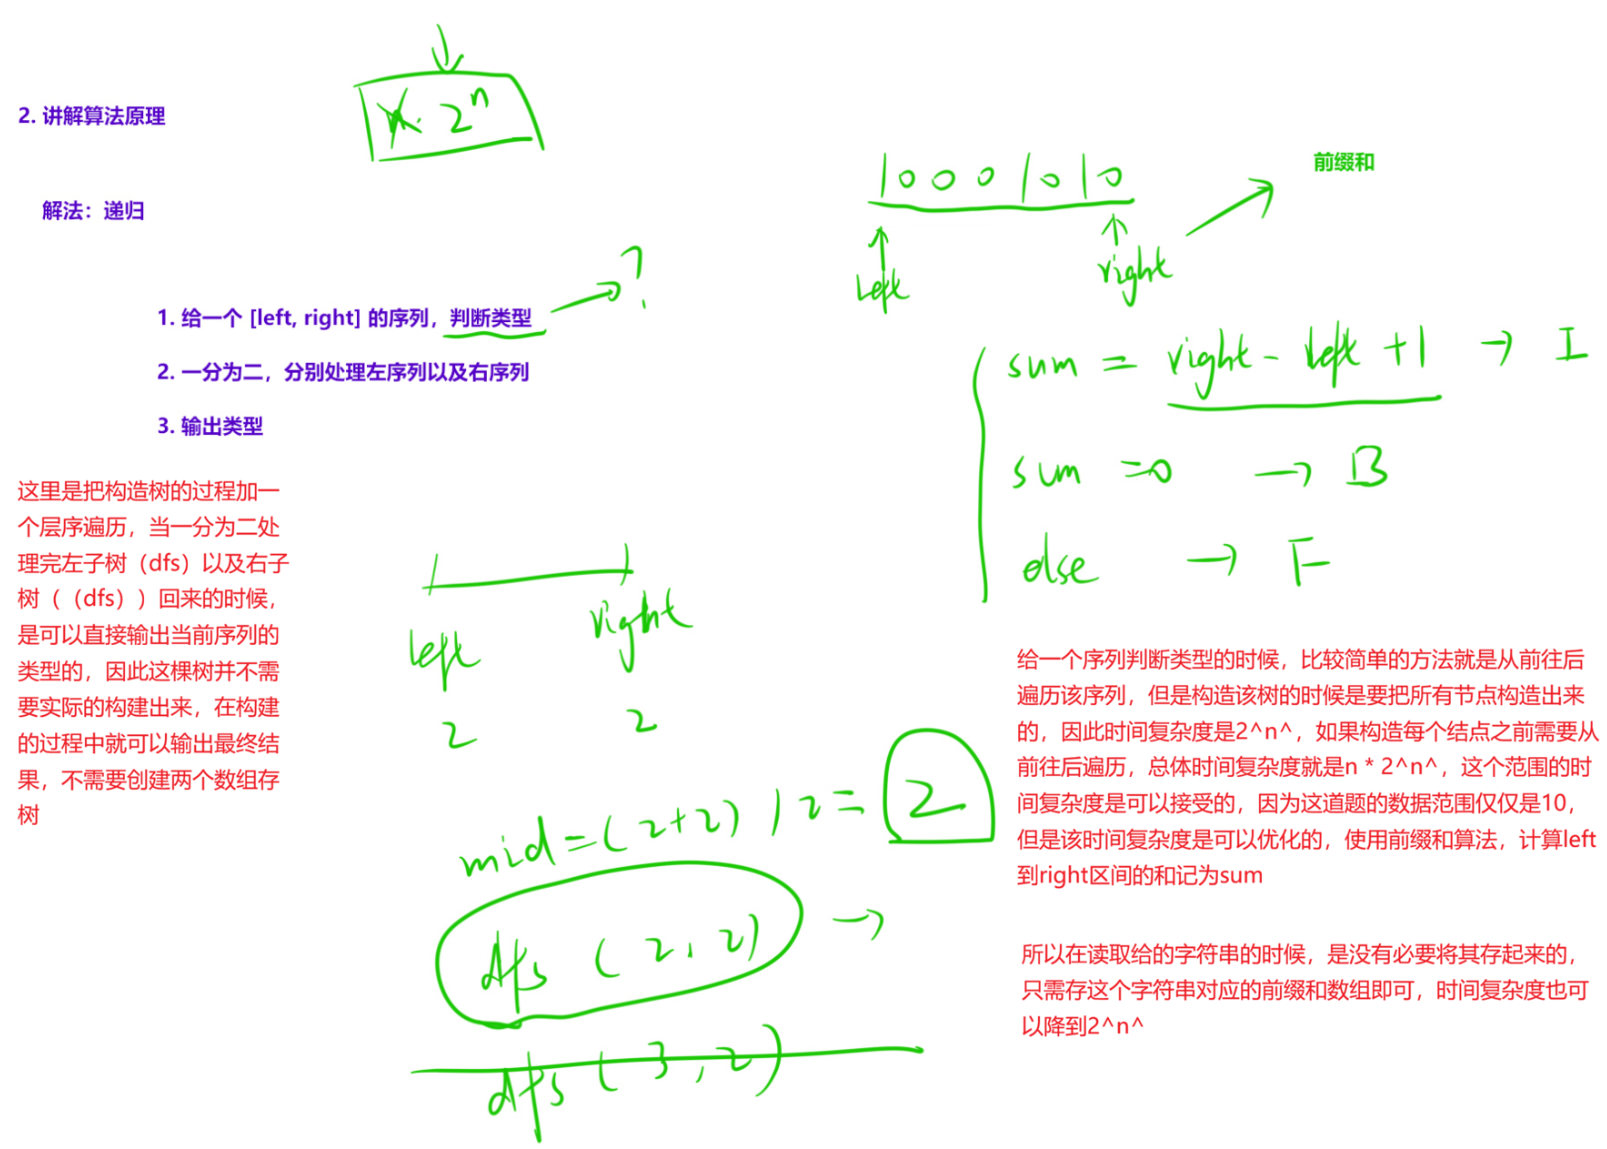 2. 讲解算法原理
n·2ⁿ
解法：递归
1. 给一个 [left, right] 的序列，判断类型
?
2. 一分为二，分别处理左序列以及右序列
3. 输出类型
这里是把构造树的过程加一
个层序遍历，当一分为二处
理完左子树（dfs）以及右子
树（（dfs））回来的时候，
是可以直接输出当前序列的
类型的，因此这棵树并不需
要实际的构建出来，在构建
的过程中就可以输出最终结
果，不需要创建两个数组存
树
left right
2 2
mid=(2+2)/2= 2
dfs (2,2) →
dfs (3,2)
10001010
前缀和
left right
sum = right - left +1 → I
sum =0 → B
else → F
给一个序列判断类型的时候，比较简单的方法就是从前往后
遍历该序列，但是构造该树的时候是要把所有节点构造出来
的，因此时间复杂度是2^n^，如果构造每个结点之前需要从
前往后遍历，总体时间复杂度就是n * 2^n^，这个范围的时
间复杂度是可以接受的，因为这道题的数据范围仅仅是10，
但是该时间复杂度是可以优化的，使用前缀和算法，计算left
到right区间的和记为sum
所以在读取给的字符串的时候，是没有必要将其存起来的，
只需存这个字符串对应的前缀和数组即可，时间复杂度也可
以降到2^n^